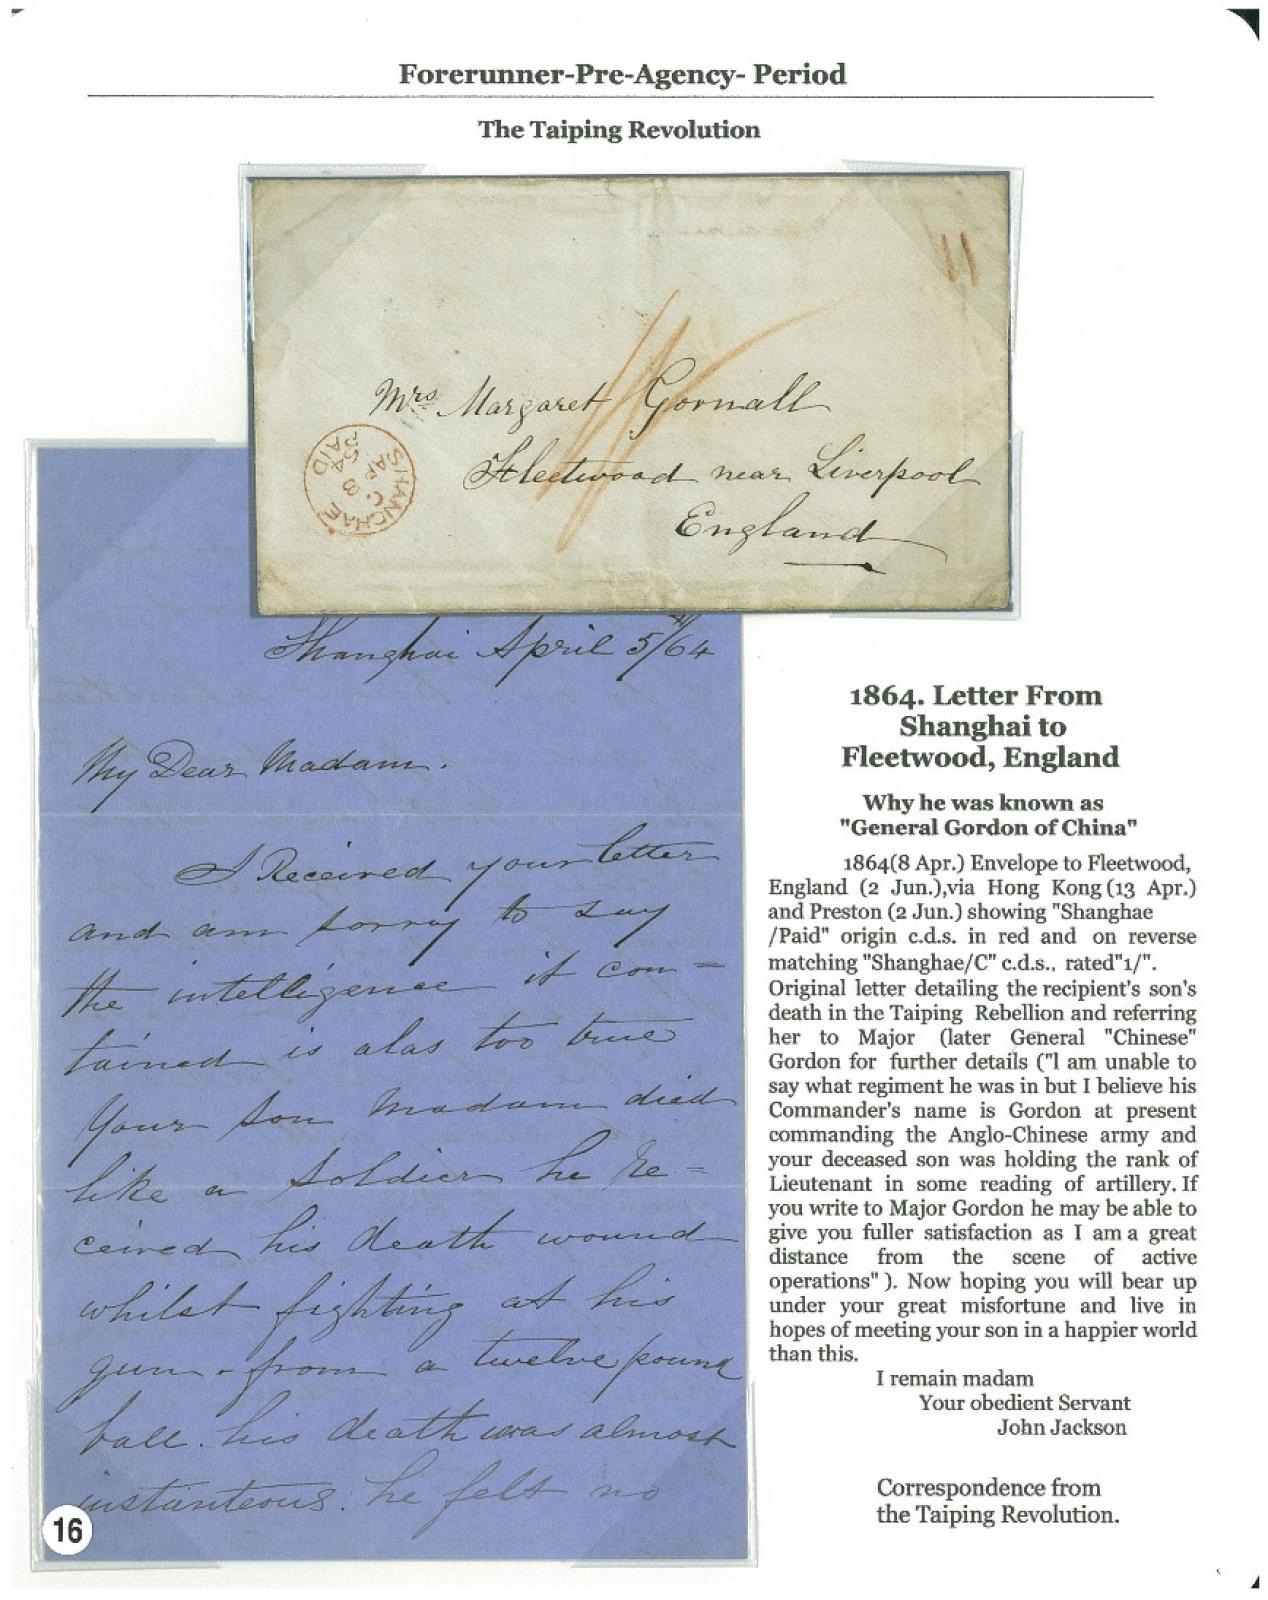 Forerunner-Pre-Agency- Period
The Taiping Revolution
11
Mrs Margaret Gornall
Fleetwood near Liverpool
England
SHANGHAE
C
8
AP
64
PAID
Shanghai April 5/64
My Dear Madam.
I Received your letter
and am sorry to say
the intelligence it con=
tained is alas too true
Your son Madam died
like a soldier he re=
ceived his death wound
whilst fighting at his
gun - from a twelve pound
ball. his death was almost
instanteous. he felt no
16
1864. Letter From
Shanghai to
Fleetwood, England
Why he was known as
"General Gordon of China"
1864(8 Apr.) Envelope to Fleetwood,
England (2 Jun.),via Hong Kong (13 Apr.)
and Preston (2 Jun.) showing "Shanghae
/Paid" origin c.d.s. in red and on reverse
matching "Shanghae/C" c.d.s., rated"1/".
Original letter detailing the recipient's son's
death in the Taiping Rebellion and referring
her to Major (later General "Chinese"
Gordon for further details ("I am unable to
say what regiment he was in but I believe his
Commander's name is Gordon at present
commanding the Anglo-Chinese army and
your deceased son was holding the rank of
Lieutenant in some reading of artillery. If
you write to Major Gordon he may be able to
give you fuller satisfaction as I am a great
distance from the scene of active
operations" ). Now hoping you will bear up
under your great misfortune and live in
hopes of meeting your son in a happier world
than this.
I remain madam
Your obedient Servant
John Jackson
Correspondence from
the Taiping Revolution.